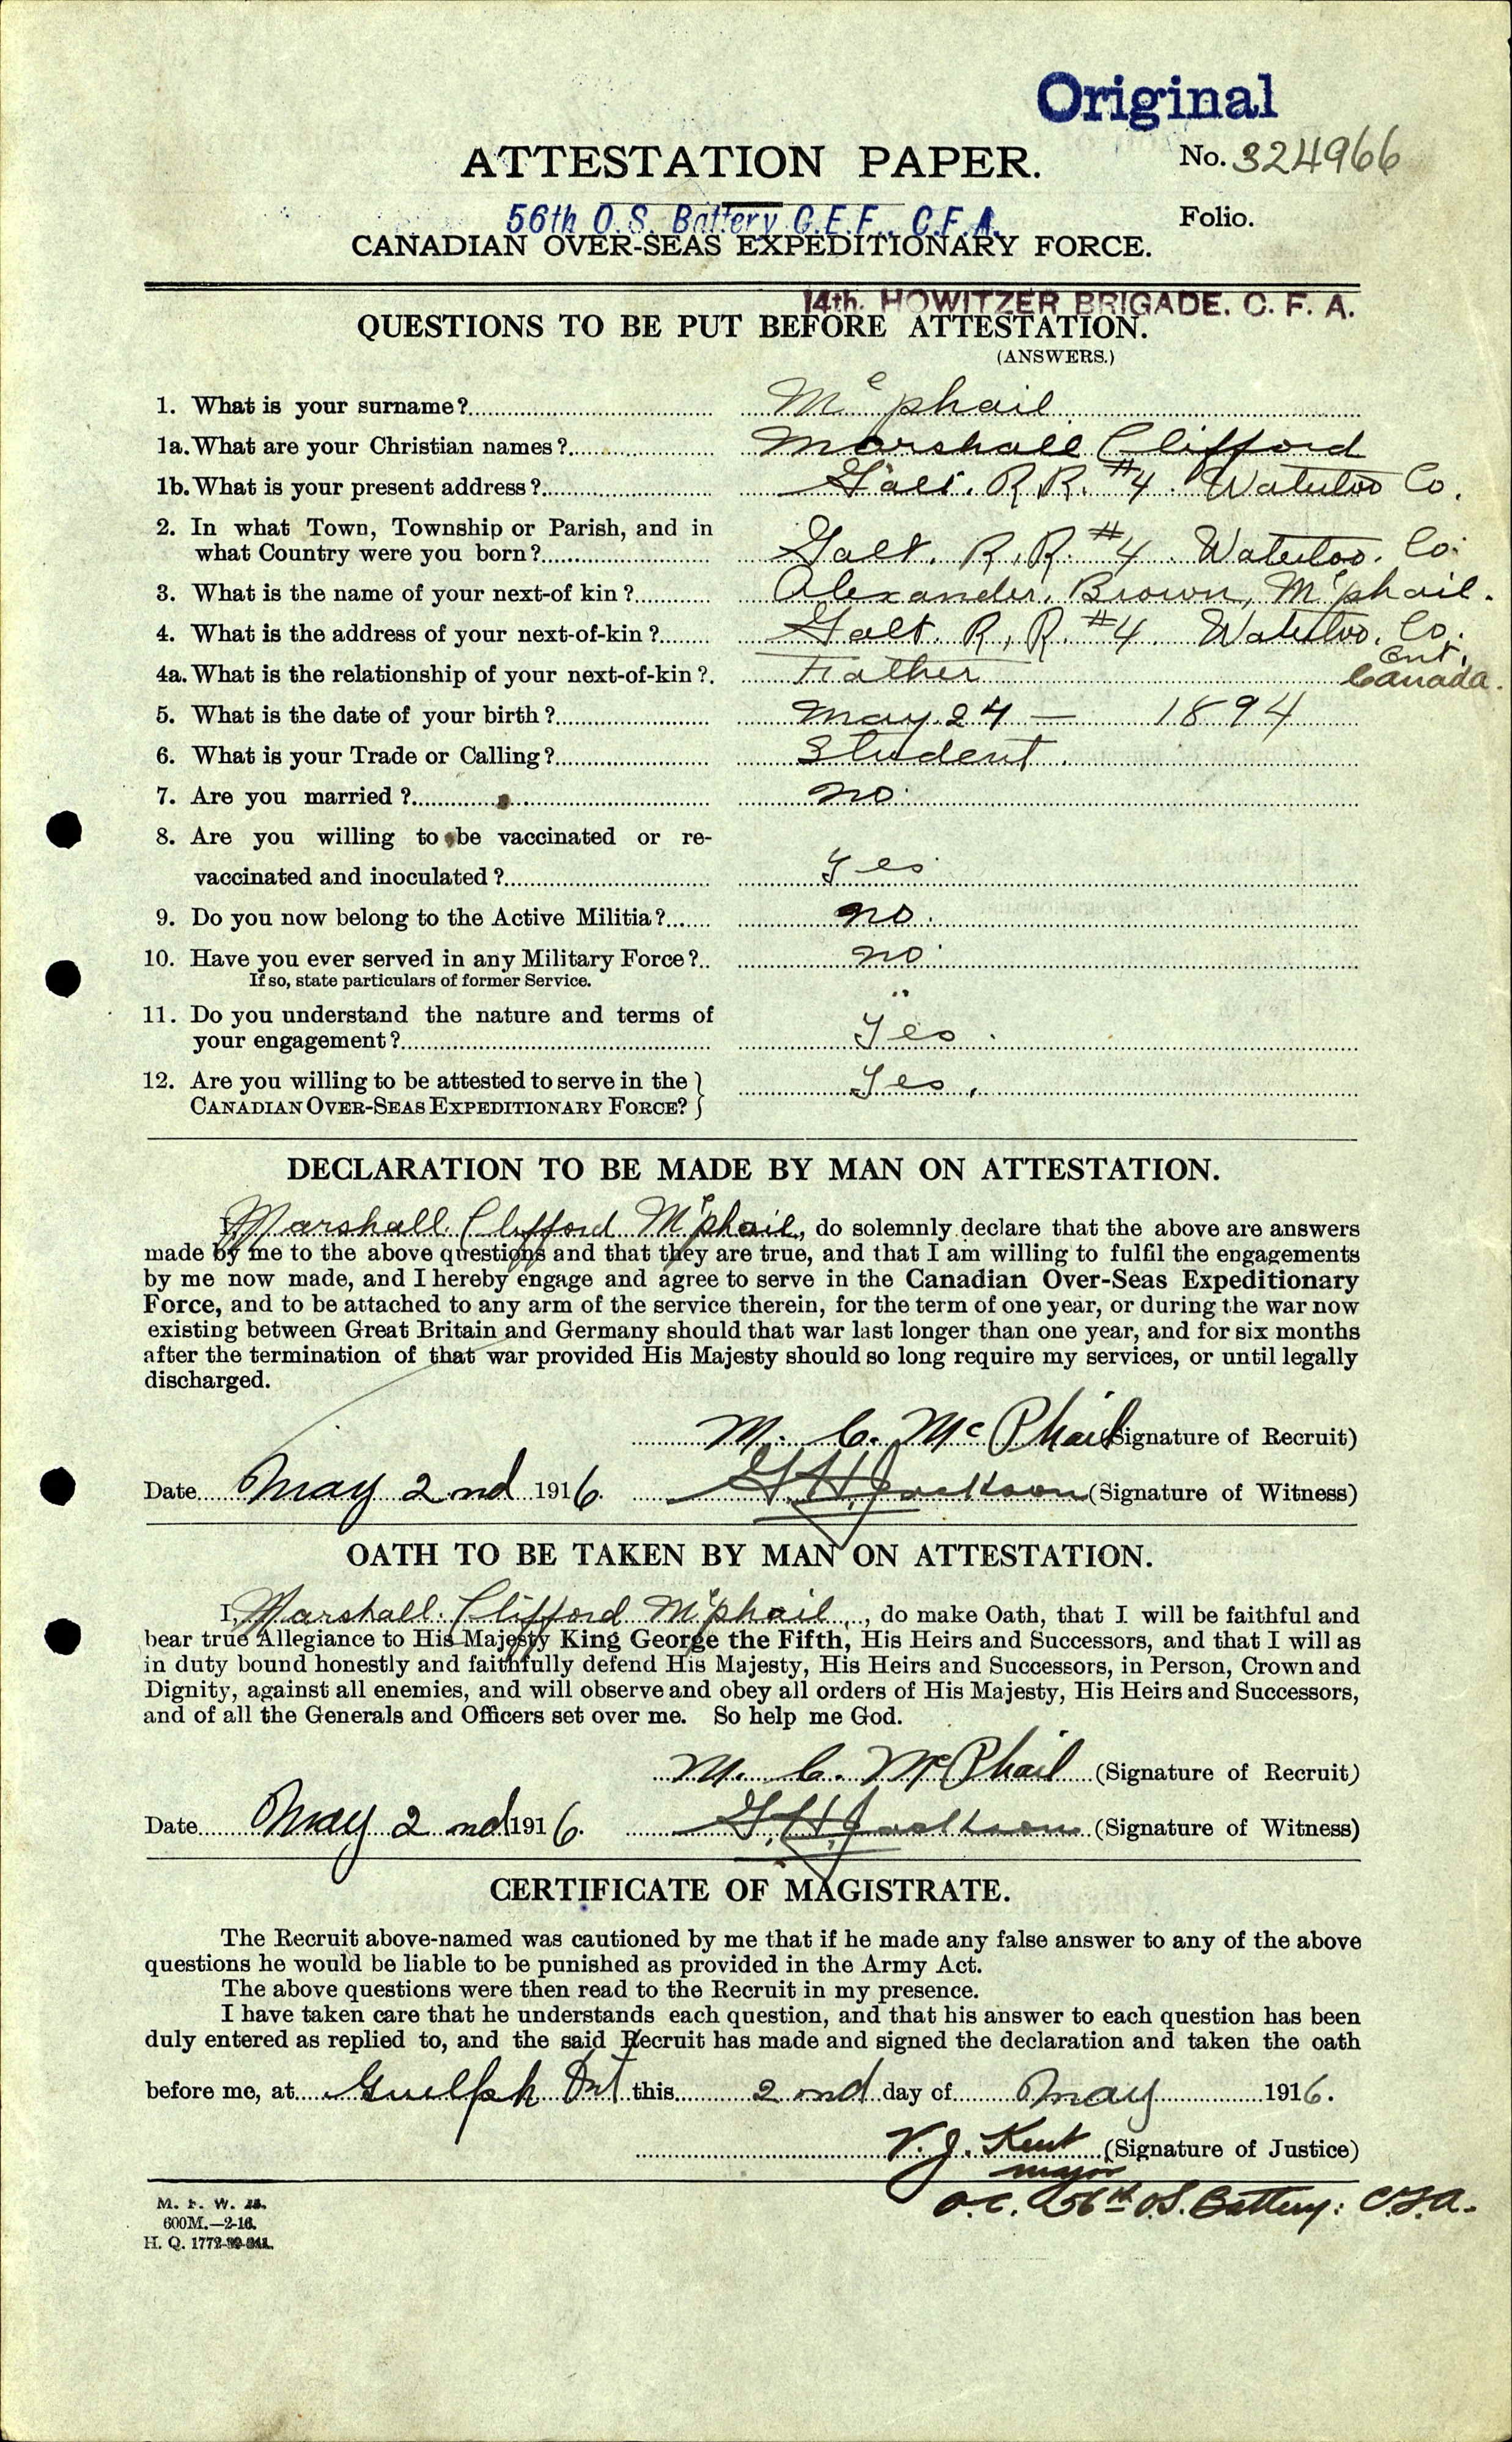 Original
ATTESTATION PAPER.
No. 324966
56th O.S. Battery C.E.F. C.F.A.
Folio.
CANADIAN OVER-SEAS EXPEDITIONARY FORCE.
14th. HOWITZER BRIGADE. C. F. A.
QUESTIONS TO BE PUT BEFORE ATTESTATION.
(ANSWERS.)
1. What is your surname? Mcphail
1a. What are your Christian names? Marshall Clifford
1b. What is your present address? Galt. R.R. #4. Waterloo Co.
2. In what Town, Township or Parish, and in
what Country were you born? Galt. R.R. #4. Waterloo. Co.
3. What is the name of your next-of kin? Alexander. Brown, Mcphail.
4. What is the address of your next-of-kin? Galt. R.R. #4. Waterloo. Co.
Ont.
4a. What is the relationship of your next-of-kin? Father Canada.
5. What is the date of your birth? May. 24 — 1894
6. What is your Trade or Calling? Student.
7. Are you married? no.
8. Are you willing to be vaccinated or re-
vaccinated and inoculated? Yes
9. Do you now belong to the Active Militia? no.
10. Have you ever served in any Military Force? no
If so, state particulars of former Service.
11. Do you understand the nature and terms of
your engagement? Yes.
12. Are you willing to be attested to serve in the Yes.
CANADIAN OVER-SEAS EXPEDITIONARY FORCE?
DECLARATION TO BE MADE BY MAN ON ATTESTATION.
I, Marshall. Clifford Mcphail, do solemnly declare that the above are answers
made by me to the above questions and that they are true, and that I am willing to fulfil the engagements
by me now made, and I hereby engage and agree to serve in the Canadian Over-Seas Expeditionary
Force, and to be attached to any arm of the service therein, for the term of one year, or during the war now
existing between Great Britain and Germany should that war last longer than one year, and for six months
after the termination of that war provided His Majesty should so long require my services, or until legally
discharged.
M. C. McPhail (Signature of Recruit)
Date May 2nd 1916. G.H. Jackson (Signature of Witness)
OATH TO BE TAKEN BY MAN ON ATTESTATION.
I, Marshall. Clifford Mcphail, do make Oath, that I will be faithful and
bear true Allegiance to His Majesty King George the Fifth, His Heirs and Successors, and that I will as
in duty bound honestly and faithfully defend His Majesty, His Heirs and Successors, in Person, Crown and
Dignity, against all enemies, and will observe and obey all orders of His Majesty, His Heirs and Successors,
and of all the Generals and Officers set over me. So help me God.
M. C. McPhail (Signature of Recruit)
Date May 2nd 1916. G.H. Jackson (Signature of Witness)
CERTIFICATE OF MAGISTRATE.
The Recruit above-named was cautioned by me that if he made any false answer to any of the above
questions he would be liable to be punished as provided in the Army Act.
The above questions were then read to the Recruit in my presence.
I have taken care that he understands each question, and that his answer to each question has been
duly entered as replied to, and the said Recruit has made and signed the declaration and taken the oath
before me, at Guelph Ont this 2nd day of May 1916.
V. J. Kent (Signature of Justice)
major
O.C. 56th O.S. Battery: C.F.A.
M. F. W.
600M.—2-16.
H. Q. 1772